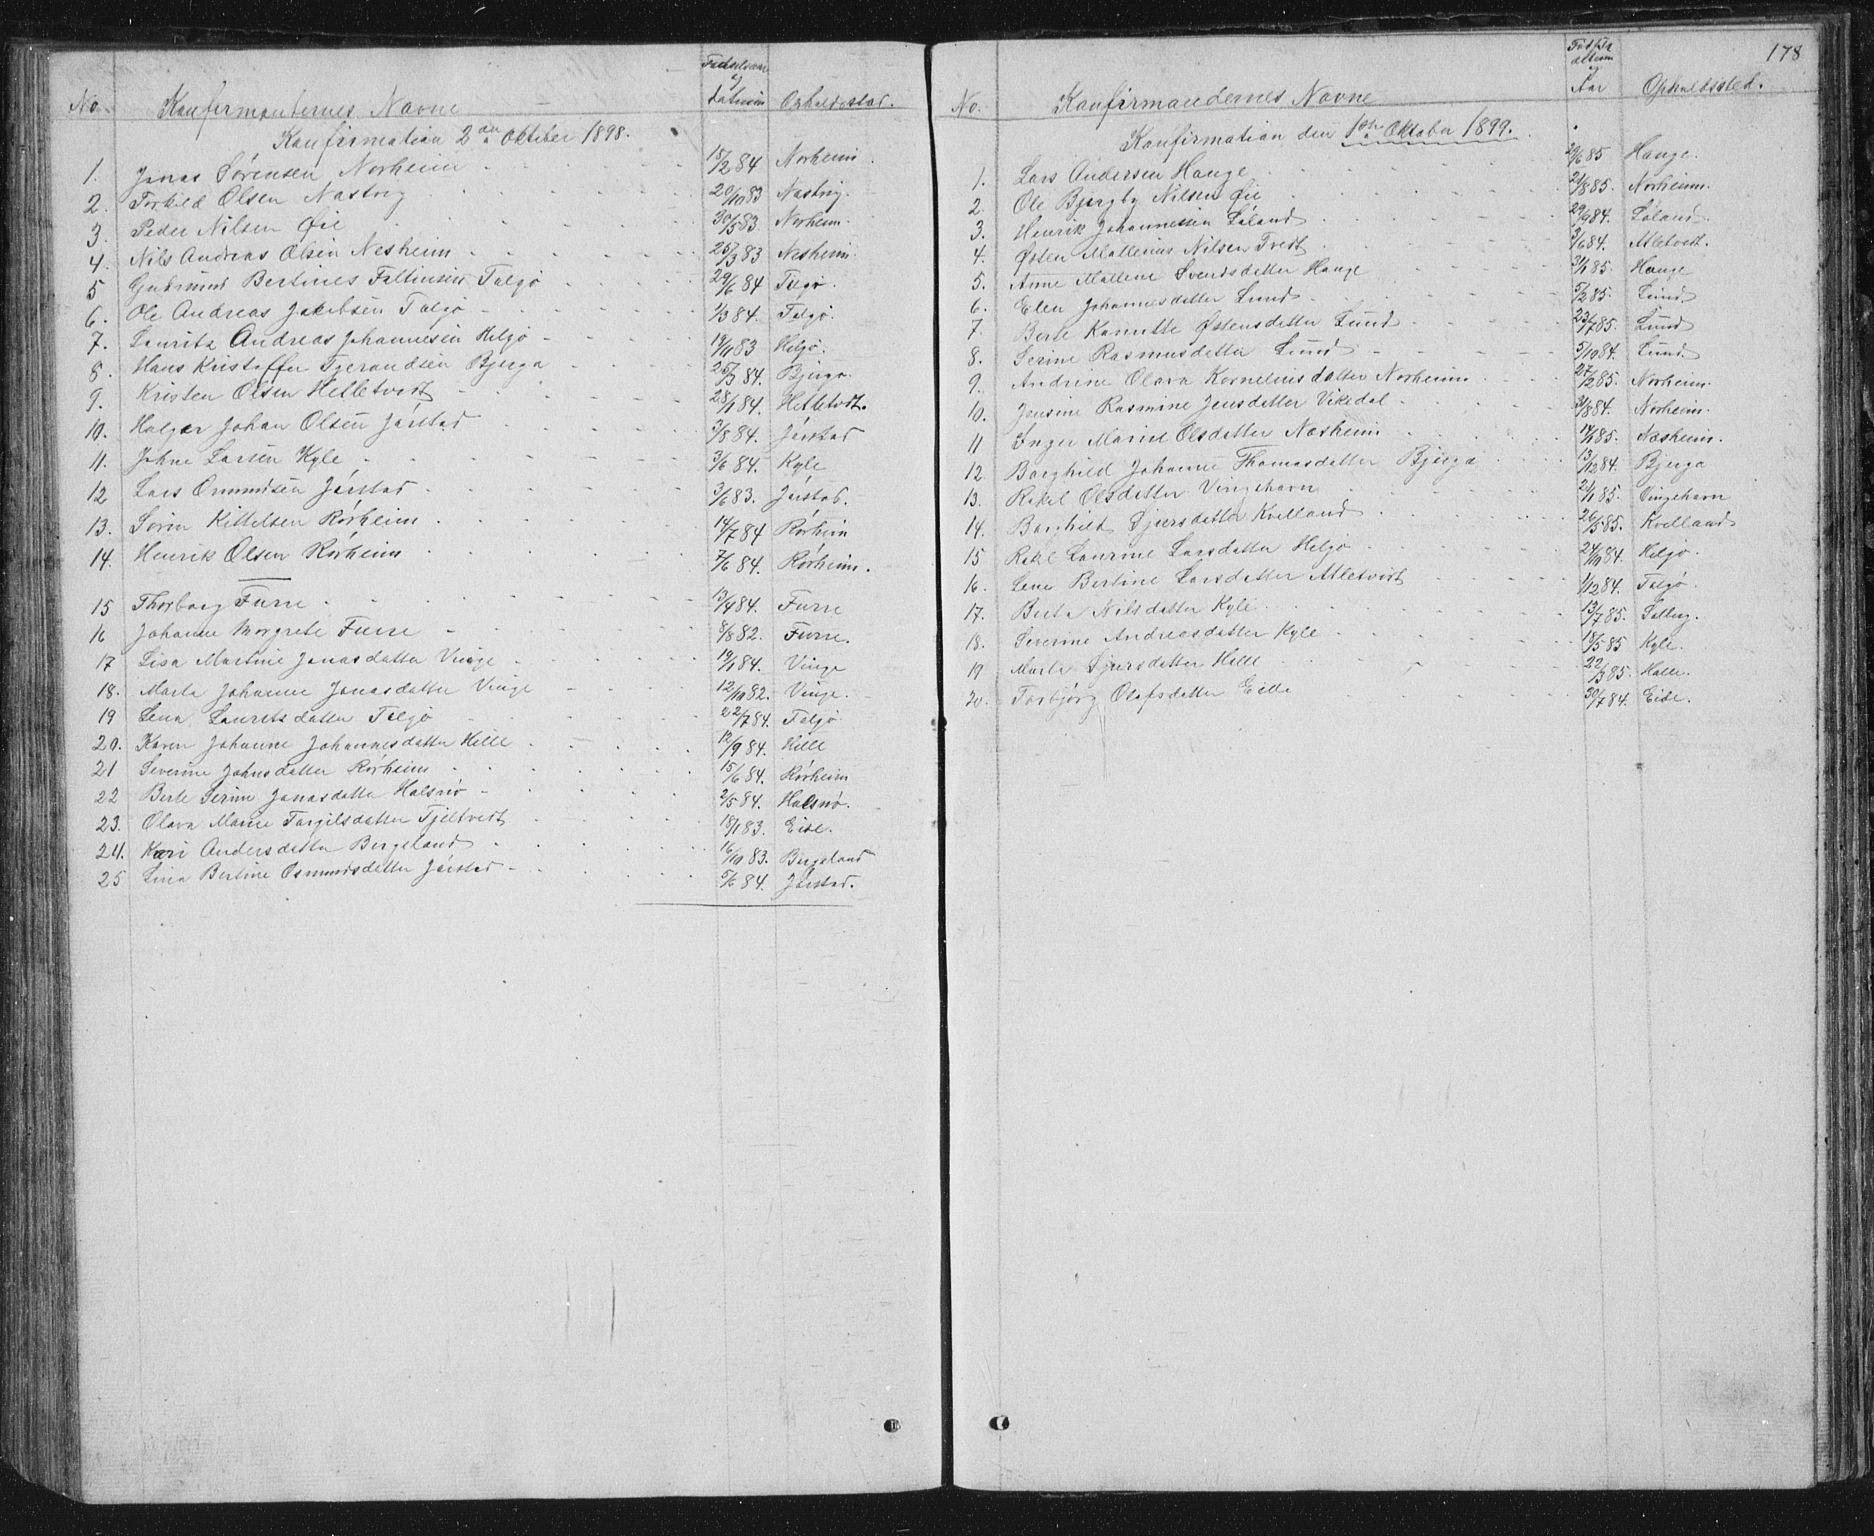 No. Konfirmanternes Navne Fødselsaar og Datum Opholdssted.
Konfirmation 2den Oktober 1898.
1. Jonas Sørensen Norheim 15/2 84 Norheim.
2. Torkild Olsen Nastvig 20/10 83 Nastvig.
3. Peder Nilsen Øie 30/5 83. Norheim.
4. Nils Andreas Olsen Nesheim 25/3 83 Nesheim.
5 Gudmund Bertines Faltinsen Talgø 29/6 84 Talgø.
6. Ole Andreas Jakobsen Talgø 1/3 84. Talgø.
7. Lauritz Andreas Johannesen Helgø 19/11 83 Helgø.
8. Hans Kristoffer Tjerandsen Bjerga 25/3 84. Bjerga.
9. Kristen Olsen Hetletvedt 28/1 84. Hetletvdt.
10. Holger Johan Olsen Jørstad 3/8 84. Jørstad
11. Johne Larsen Kyle 3/6 84. Kyle
12 Lars Osmundsen Jørstad 3/6 83. Jørstad.
13. Sørin Kittelsen Rørheim 14/7 84 Rørheim
14. Henrik Olsen Rørheim 7/6 84. Rørheim.
15 Thorborg Furre 13/4 84. Furre
16 Johanne Margrete Furre 8/8 82. Furre.
17 Lisa Martine Jonasdatter Vinge 19/1 84. Vinge
18. Marta Johanne Jonasdatter Vinge 12/10 82. Vinge.
19 Lena Lauritsdatter Talgø 22/7 84. Talgø
20. Karen Johanne Johannesdatter Helle 12/9 84. Helle
21 Severine Johnsdatter Rørheim 15/6 84. Rørheim
22 Berte Serine Jonasdatter Halsnø 2/5 84. Halsnø.
23. Olava Marie Torgilsdatter Tjeltvedt 18/1 83. Eide.
24. Kari Andersdatter Bergeland 16/10 83. Bergeland
25 Lina Bertine Osmundsdatter Jørstad 5/6 84. Jørstad.
178
No. Konfirmandernes Navne Datum og Aar Opholdssted.
Konfirmation den 1ste Oktober 1899.
1. Lars Andersen Hauge 20/6 85 Hauge.
2. Ole Bjergby Nilsen Øie 21/8 85. Norheim.
3. Henrik Johannesen Løland 29/9 84. Løland.
4. Østen Mallenius Nilsen Tvedt 3/6 84. Atletvedt.
5. Anne Mallene Svendsdatter Hauge 31/1 85. Hauge
6. Elen Johannesdatter Lund 5/2 85. Lund
7. Berte Kamitte Østensdatter Lund 23/7 85. Lund
8. Serine Rasmusdatter Lund 5/10 84. Lund.
9. Andrine Olava Korneliusdatter Norheim 27/2 85. Norheim.
10. Jensine Rasmine Jensdatter Vikedal 31/8 84. Norheim.
11 Inger Marie Olsdatter Næsheim 14/1 85. Næsheim.
12. Borghild Johanne Thomasdatter Bjerga 13/12 84. Bjerga
13. Rakel Olsdatter Vingehavn 21/1 85. Vingehavn
14. Borghild Sjursdatter Kvelland 26/5 85. Kvelland
15 Rakel Laurine Larsdatter Helgø 24/10 84. Helgø.
16. Lene Bertine Larsdatter Atletvedt 1/12 84. Talgø.
17. Berta Nilsdatter Kyle 13/7 85.
18. Serine Andreasdatter Kyle 18/5 85 Kyle.
19 Marta Sjursdatter Helle 22/3 85. Helle.
20. Torbjørg Olafsdatter Eide 30/7 84. Eide.